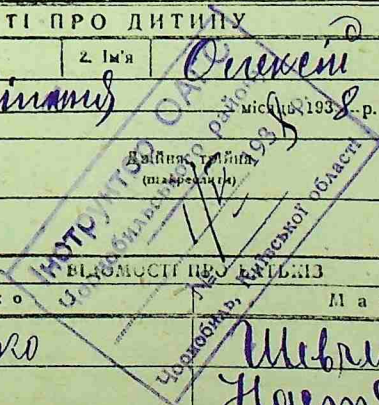 ТІ ПРО ДИТИНУ
2. Ім'я Олексій
місяць, 1938 р.
Двійня, трійня
(підкреслити)
Інструктор ОАГС
Чорнобильського району
193 р.
№
Чорнобиль, Київської області
ВІДОМОСТІ ПРО БАТЬКІВ
ко Ма
ко Шевч